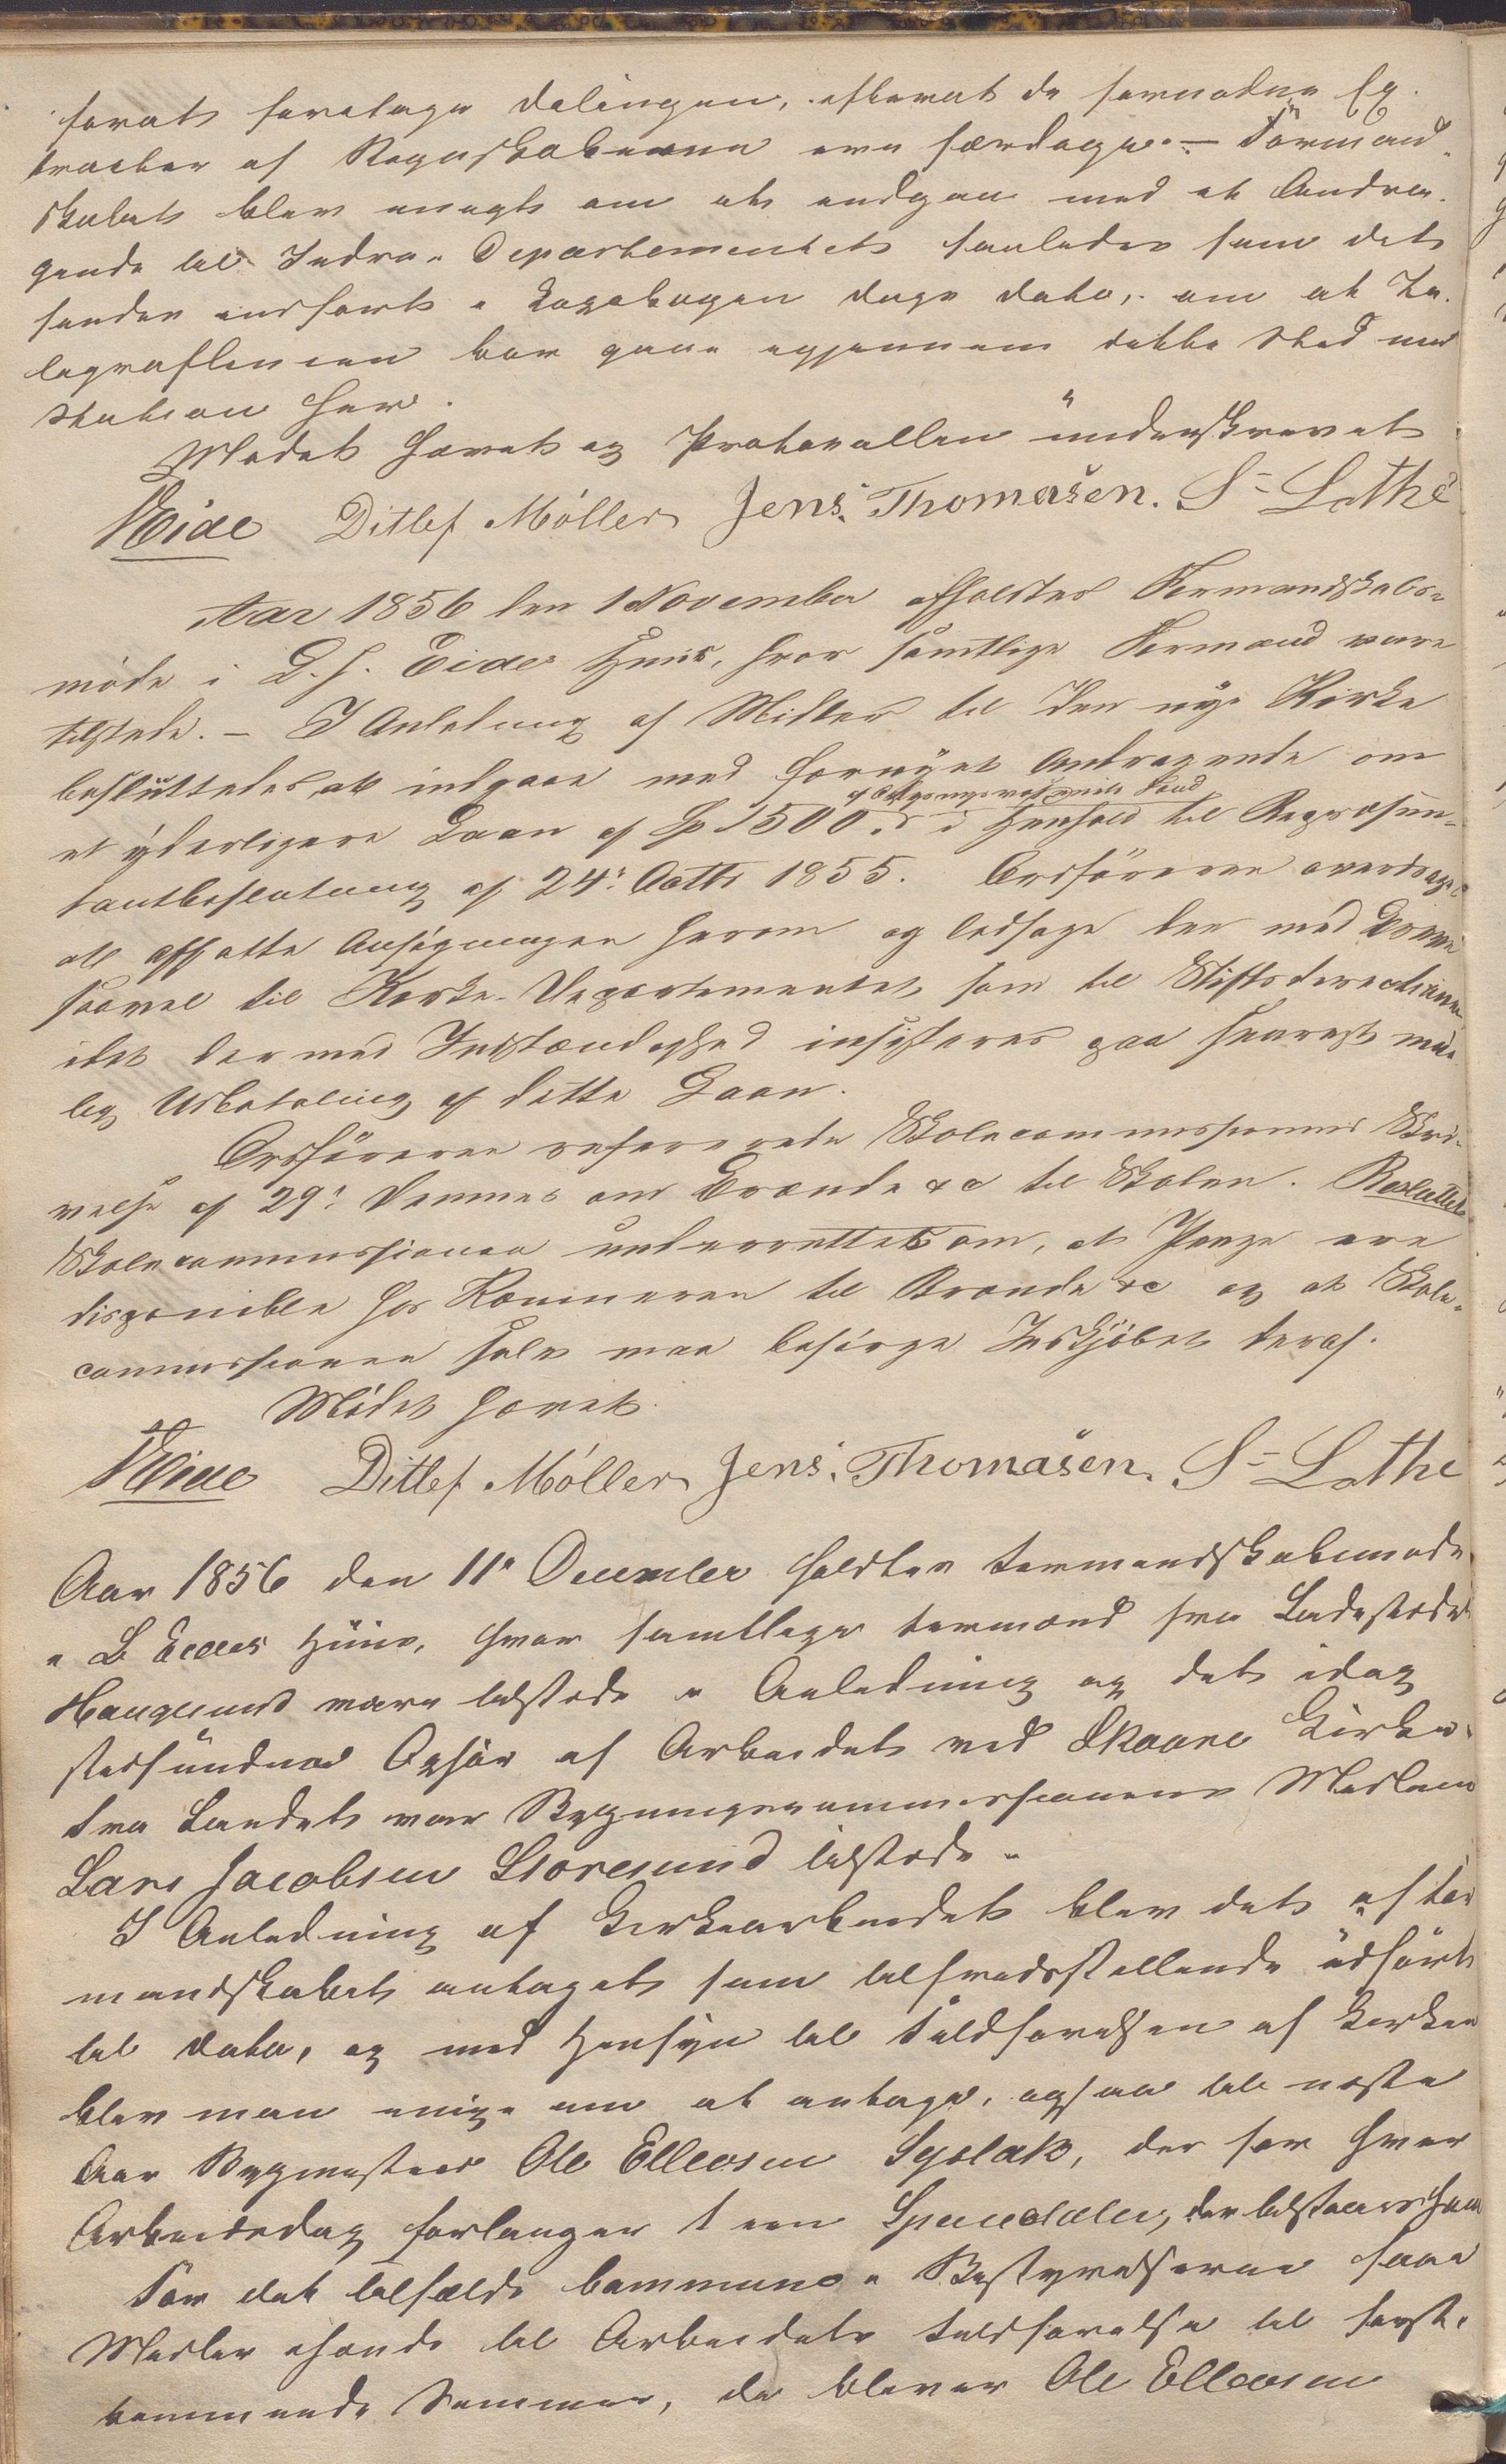 forat foretage Delingen, efterat de fornødne Ex-
tracter af Regnskaberne ere færdige. – Formand-
skabet blev enigt om at indgaa med et Andra-
gende til Indre-Departementet saaledes som det
findes indført i Copiebogen dags dato, om at Te-
legraflinien bør gaae igjennem dette Sted med
Station her.
Mødet hævet og Protocollen underskrevet
Eide Ditlef Møller Jens Thomasen. S Lothe
Aar 1856 den 1 November afholdtes Formandskabs-
møde i L. H. Eides Huus, hvor samtlige Formænd vare
tilstede. – I Anledning af Midler til den nye Kirke
besluttedes, at indgaae med fornyet Andragende om
af Oplysningsvæsenets Fond
et yderligere Laan af Sp 1500. i Henhold til Repræsen-
tantbeslutning af 24de Octb 1855. Ordføreren overdroges
at affatte Ansøgningen herom og ledsage den med
saavel til Kirke-Departementet som til Stiftsdirectionen,
idet der med Indstændighed insisteres paa snarest mue-
lig Udbetaling af dette Laan.
Ordføreren refererede Skolecommissionens Skri-
velse af 29de dennes om Brænde &c til Skolen. Besluttet
Skolecommissionen underrettes om, at Penge ere
disponible hos Kæmneren til Brænde &c og at Skole-
commissionen selv maa besørge Indkjøbet deraf.
Mødet hævet.
Eide Ditlef Møller Jens Thomasen. S Lothe
Aar 1856 den 11te December holdtes Formandskabsmøde
i L Eides Huus, hvor samtlige Formænd fra Ladestedet
Haugesund vare tilstede i Anledning af det idag
stedfundne Opsyn af Arbeidet ved Skaare Kirke.
Fra Landet var Bygningscommissionens Medlem
Lars Jacobsen Storesund tilstede.
I Anledning af Kirkearbeidet blev det af For
mandskabet antaget som tilfredsstillende udført
til Dato, og med Hensyn til Fuldførelsen af Kirken
blev man enige om at antage, ogsaa til næste
Aar Bygmester Ole Ellevsen, der for hver
Arbeidsdag forlanger 1 een Speciedaler, der tilstaaes ham
For det Tilfælde Commune-Bestyrelserne faae
Midler ihænde til Arbeidets Fuldførelse til først-
kommende Sommer, da bliver Ole Ellevsen